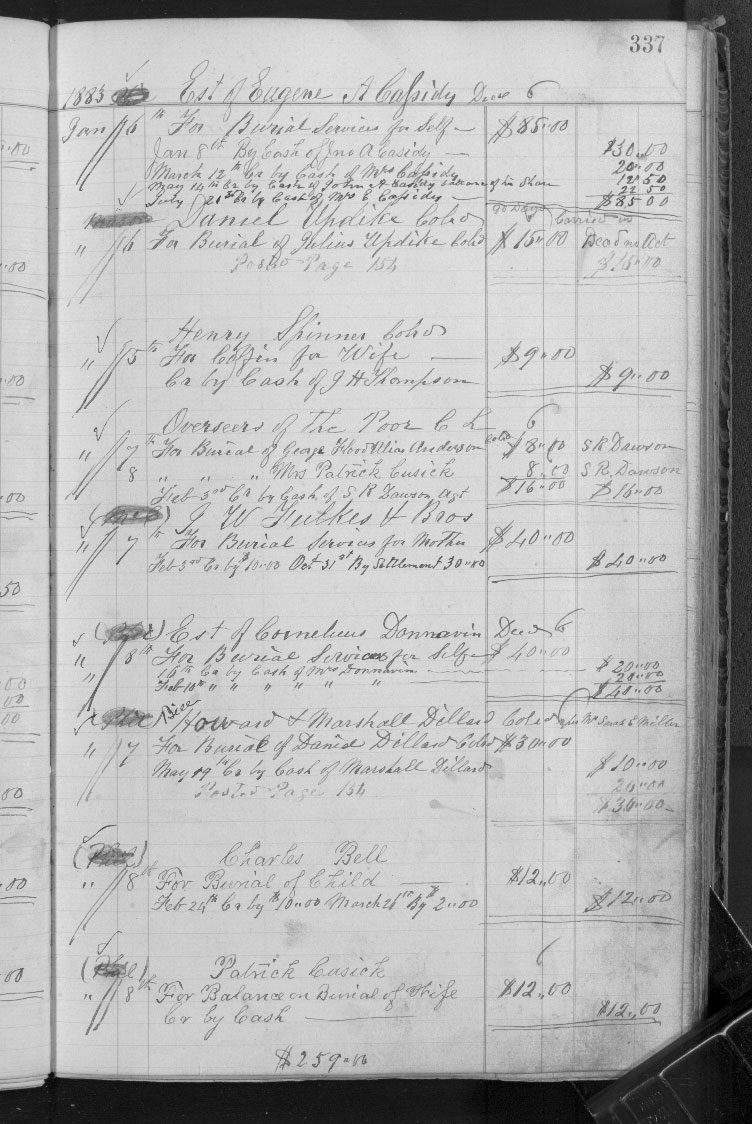 337
1883 Est of Eugene A Cassidy Decd 6
Jan 6th For Burial Services for Self $85.00
Jan 8th By Cash of Jno A Casidy $30.00
March 12th Cr by Cash of Mrs Cassidy 20.00
May 14th Cr by Cash of John A Casidy balance of his Share 12.50
July 21st Cr by Cash of Mrs E Cassidy 22.50
$85.00
Daniel Updike Colrd 90 Days Carried in
" 6 For Burial of Julius Updike Colrd $15.00 Dead no Act
Posted Page 154 $15.00
Henry Spinner Colrd
" 5th For Coffin for Wife $9.00
Cr by Cash of J H Thompson $9.00
Overseers of the Poor C L 6
" 7th For Burial of George Flood Alias Anderson Colrd $8.00 S R Dawson
8 " " " Mrs Patrick Cusick 8.00 S R, Dawson
Feb 3rd Cr by Cash of S R Dawson Agt $16.00 $16.00
G W Fulkes & Bros
" 7th For Burial Services for Mother $40.00
Feb 3rd Cr by $10.00 Oct 31st By Settlement 30.00 $40.00
Est of Cornelius Donnavin Decd 6
" 8th For Burial Services for Self $40.00
16th Cr by Cash of Mrs Donnavin $20.00
Feb 10th " " " " " " 20.00
$40.00
Bill Howard & Marshall Dillard Colrd Mrs Sarah E Miller
" 7 For Burial of David Dillard Colrd $30.00
May 19th Cr by Cash of Marshall Dillard $10.00
Posted Page 154 20.00
$30.00
Charles Bell
" 8th For Burial of Child $12.00
Feb 24th Cr by $10.00 March 26th By $2.00 $12.00
Patrick Cusick 6
" 8th For Balance on Burial of Wife $12.00
Cr by Cash $12.00
$259.00